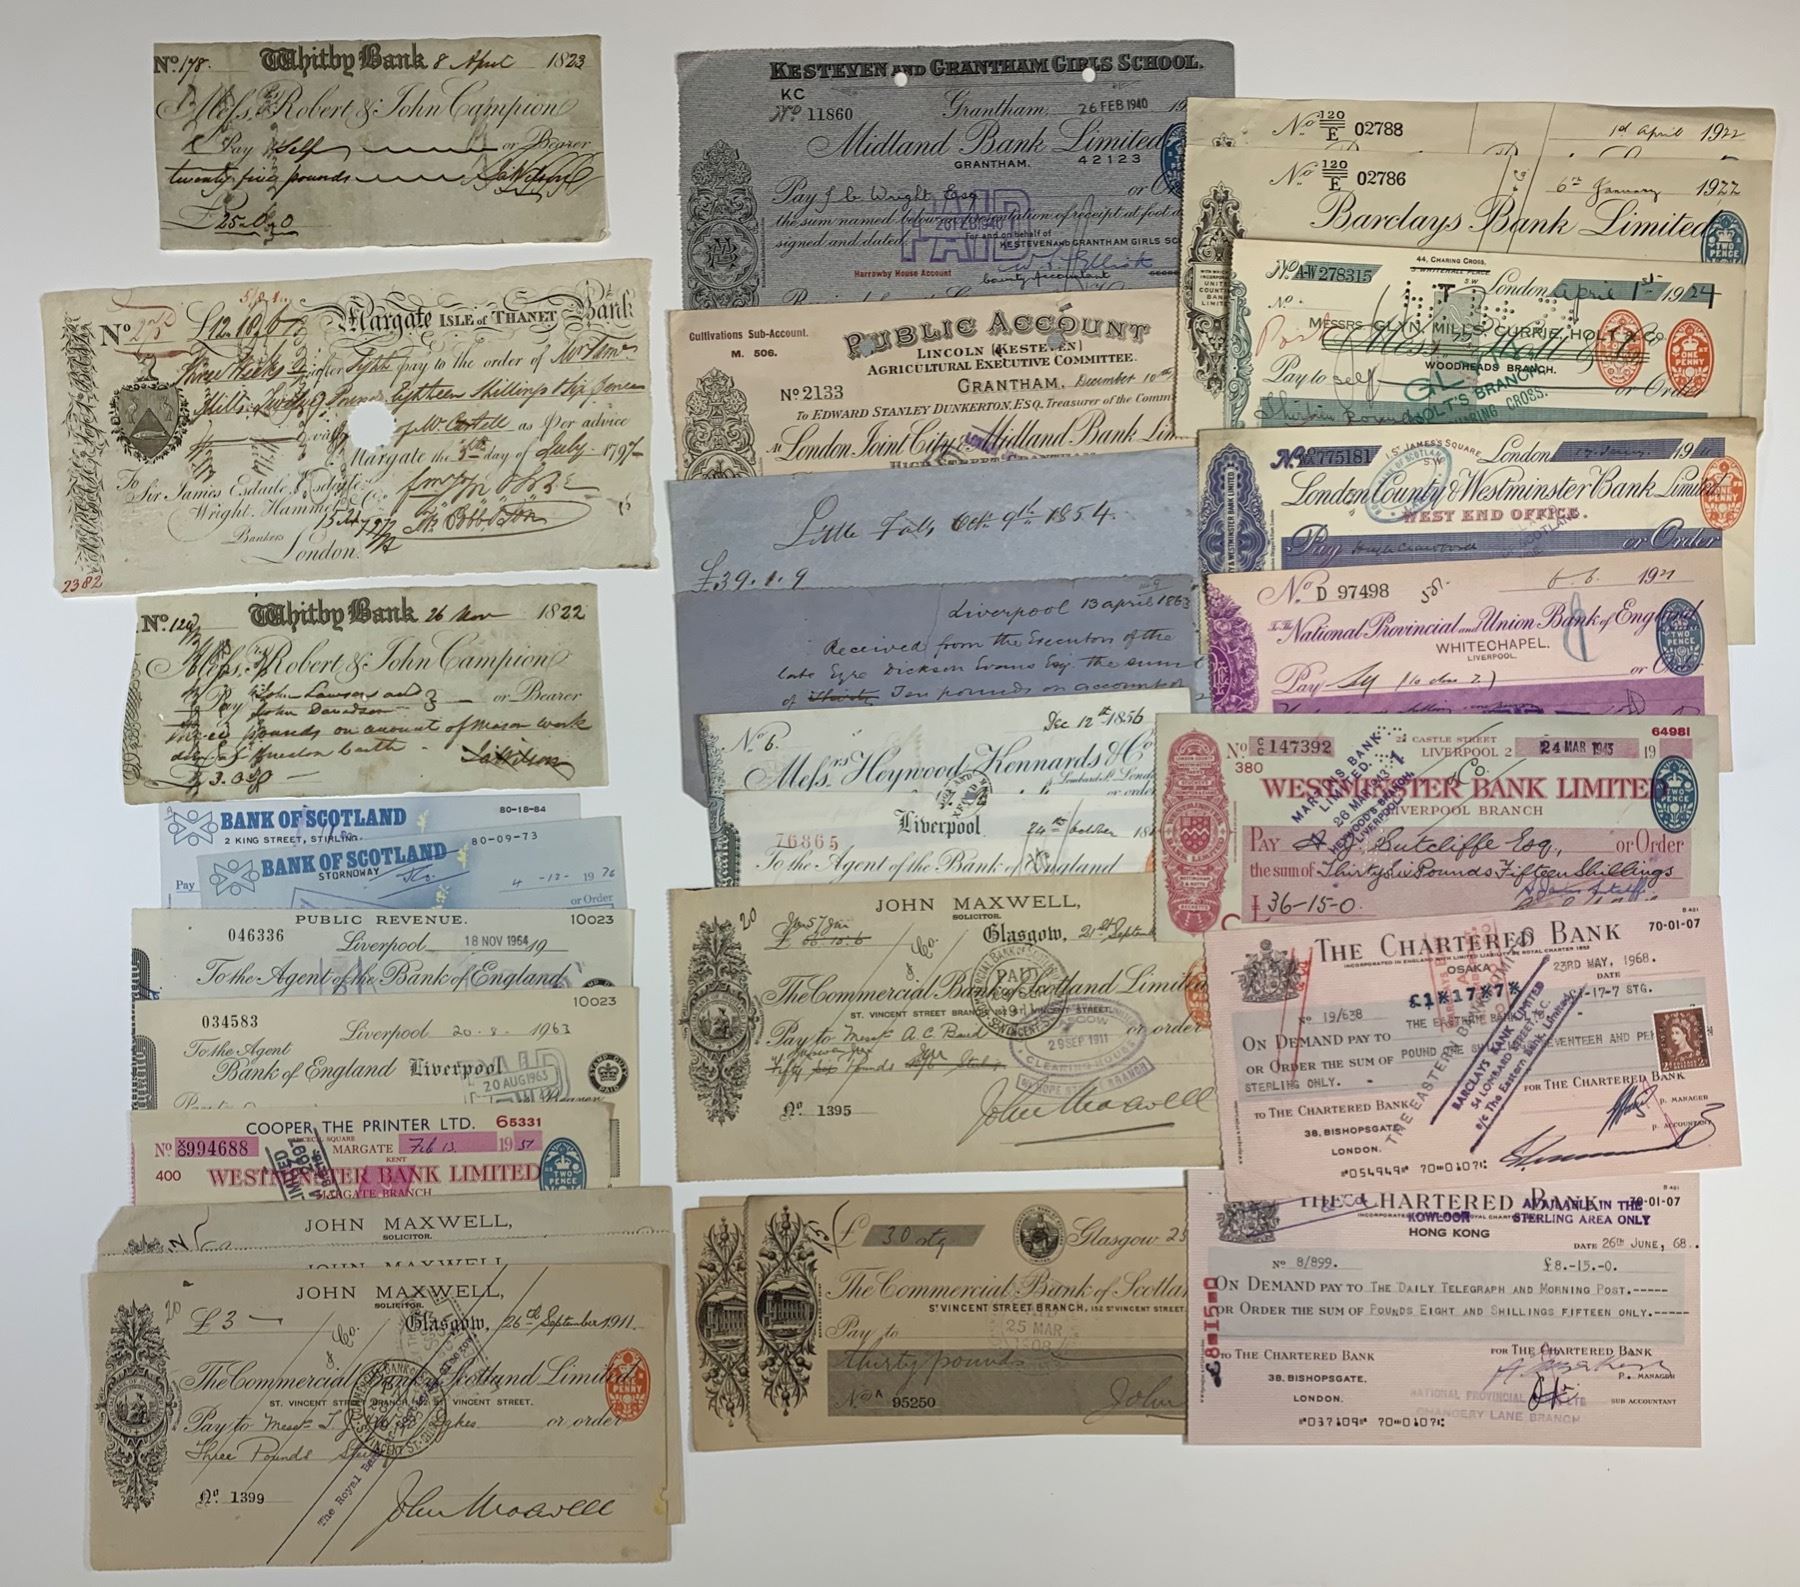 No. 178. Whitby Bank 8 April 1823
Messrs. Robert & John Campion
Pay self or Bearer
twenty five pounds
£25.0.0
No
£12.18.6 Margate Isle of Thanet Bank
Three Weeks after sight pay to the order of Mr
Twelve Pounds Eighteen Shillings & six pence
as per advice
Margate the 5th day of July 1797
To
Sir James Esdaile, Esdaile,
Wright, Hammet & Co.
Bankers
London.
2382
No. Whitby Bank 26 Nov 1822
Messrs. Robert & John Campion
Pay John Lawson and
John Davidson or Bearer
three pounds on account of mason work
£3.0.0
BANK OF SCOTLAND 80-18-84
2 KING STREET, STIRLING.
BANK OF SCOTLAND 80-09-73
STORNOWAY
Pay 4-12-1976
or Order
PUBLIC REVENUE. 10023
046336 Liverpool 18 NOV 1964 19
To the Agent of the Bank of England
10023
034583 Liverpool 20.8.1963
To the Agent
Bank of England Liverpool
PAID
20 AUG 1963
COOPER THE PRINTER LTD. 65331
CECIL SQUARE
No 994688 MARGATE Feb 13 1957
KENT
400 WESTMINSTER BANK LIMITED
MARGATE BRANCH
TWO PENCE
JOHN MAXWELL,
SOLICITOR.
JOHN MAXWELL,
JOHN MAXWELL,
SOLICITOR.
£3 Glasgow, 26th September 1911.
& Co.
The Commercial Bank of Scotland Limited
ST. VINCENT STREET BRANCH, 152 ST. VINCENT STREET.
Pay to Messrs T. J. & W. A. Dykes or order
Three Pounds
No. 1399 John Maxwell
The Royal
ONE PENNY
KESTEVEN AND GRANTHAM GIRLS SCHOOL.
KC
No 11860 Grantham, 26 FEB 1940 19
Midland Bank Limited
GRANTHAM. 42123
Pay J. C. Wright Esq or Or
the sum named below on presentation of receipt at foot d
signed and dated.
PAID
26 FEB 1940
For and on behalf of
KESTEVEN AND GRANTHAM GIRLS SC
Harrowby House Account
County Accountant
Cultivations Sub-Account.
M. 506.
PUBLIC ACCOUNT
LINCOLN (KESTEVEN)
AGRICULTURAL EXECUTIVE COMMITTEE.
No 2133 GRANTHAM, December 10th
To EDWARD STANLEY DUNKERTON, ESQ., Treasurer of the Comm
At London Joint City & Midland Bank Lim
HIGH STREET GRANTHAM
Little Falls Oct. 9th 1854.
£39.1.9
Liverpool 13 april 1863
Received from the Executors of the
late Eyre Dickson Evans Esq. the sum
of Ten pounds on account of
Dec 12th 1856
No 6.
Messrs Heywood, Kennards & Co.
Lombard St. London
76865 Liverpool 24th October 18
To the Agent of the Bank of England
JOHN MAXWELL,
SOLICITOR.
Glasgow, 21st September
& Co.
The Commercial Bank of Scotland Limited
ST. VINCENT STREET BRANCH, 152 ST. VINCENT STREET.
Pay to Messrs A. C. Baird or order
Fifty Pounds
29 SEP 1911
CLEARING HOUSE
HOPE STREET BRANCH
No 1395 John Maxwell
£ 30 stg Glasgow 25
The Commercial Bank of Scotla
ST VINCENT STREET BRANCH, 152 ST VINCENT STREET.
Pay to
25 MAR
thirty pounds
No A 95250 John
No 120/E 02788 1st April 1922
No 120/E 02786 6th January 1922
Barclays Bank Limited
TWO PENCE
44, CHARING CROSS,
3. WHITEHALL PLACE
S.W.
No A-W 278315 London April 1st 1924
No
MESSRS GLYN, MILLS, CURRIE, HOLT & Co
WOODHEADS BRANCH.
Pay to self or Order
HOLT'S BRANCH
CHARING CROSS.
ONE PENNY
1 ST JAMES'S SQUARE S.W.
No 775181 London 19
London County & Westminster Bank Limited
WEST END OFFICE.
Pay or Order
ONE PENNY
No D 97498 6.6. 19
To The National Provincial and Union Bank of England
WHITECHAPEL.
LIVERPOOL.
Pay or
TWO PENCE
64981
No C/C 147392 CASTLE STREET LIVERPOOL 2 24 MAR 1943 19
380
WESTMINSTER BANK LIMITED
LIVERPOOL BRANCH
MARTINS BANK LIMITED.
26 MAR 1943
HEYWOOD'S BRANCH,
LIVERPOOL
TWO PENCE
PAY Sutcliffe Esq., or Order
the sum of Thirty six Pounds Fifteen Shillings
£36-15-0
B 481
THE CHARTERED BANK 70-01-07
INCORPORATED IN ENGLAND WITH LIMITED LIABILITY BY ROYAL CHARTER 1853
OSAKA 23RD MAY, 1968.
DATE
£1*17*7*
No 19/638 -17-7 STG.
ON DEMAND PAY TO THE EASTERN
OR ORDER THE SUM OF POUND ONE SEVENTEEN AND PE
STERLING ONLY.
FOR THE CHARTERED BANK
TO THE CHARTERED BANK
38, BISHOPSGATE,
LONDON.
THE EASTERN BANK
BARCLAYS BANK LIMITED
54 LOMBARD STREET, E.C.
a/c The Eastern Bank, Limited
P. MANAGER
P. ACCOUNTANT
"054949" 70"0107:
B 481
THE CHARTERED BANK 70-01-07
KOWLOON
AVAILABLE IN THE
STERLING AREA ONLY
HONG KONG
DATE 26TH JUNE, 68.
No 8/899. £8.-15.-0.
ON DEMAND PAY TO THE DAILY TELEGRAPH AND MORNING POST.-----
OR ORDER THE SUM OF POUNDS EIGHT AND SHILLINGS FIFTEEN ONLY.----
£8-15-0
TO THE CHARTERED BANK FOR THE CHARTERED BANK
38, BISHOPSGATE,
LONDON.
P. MANAGER
SUB ACCOUNTANT
NATIONAL PROVINCIAL
CHANCERY LANE BRANCH
"037109" 70"0107: